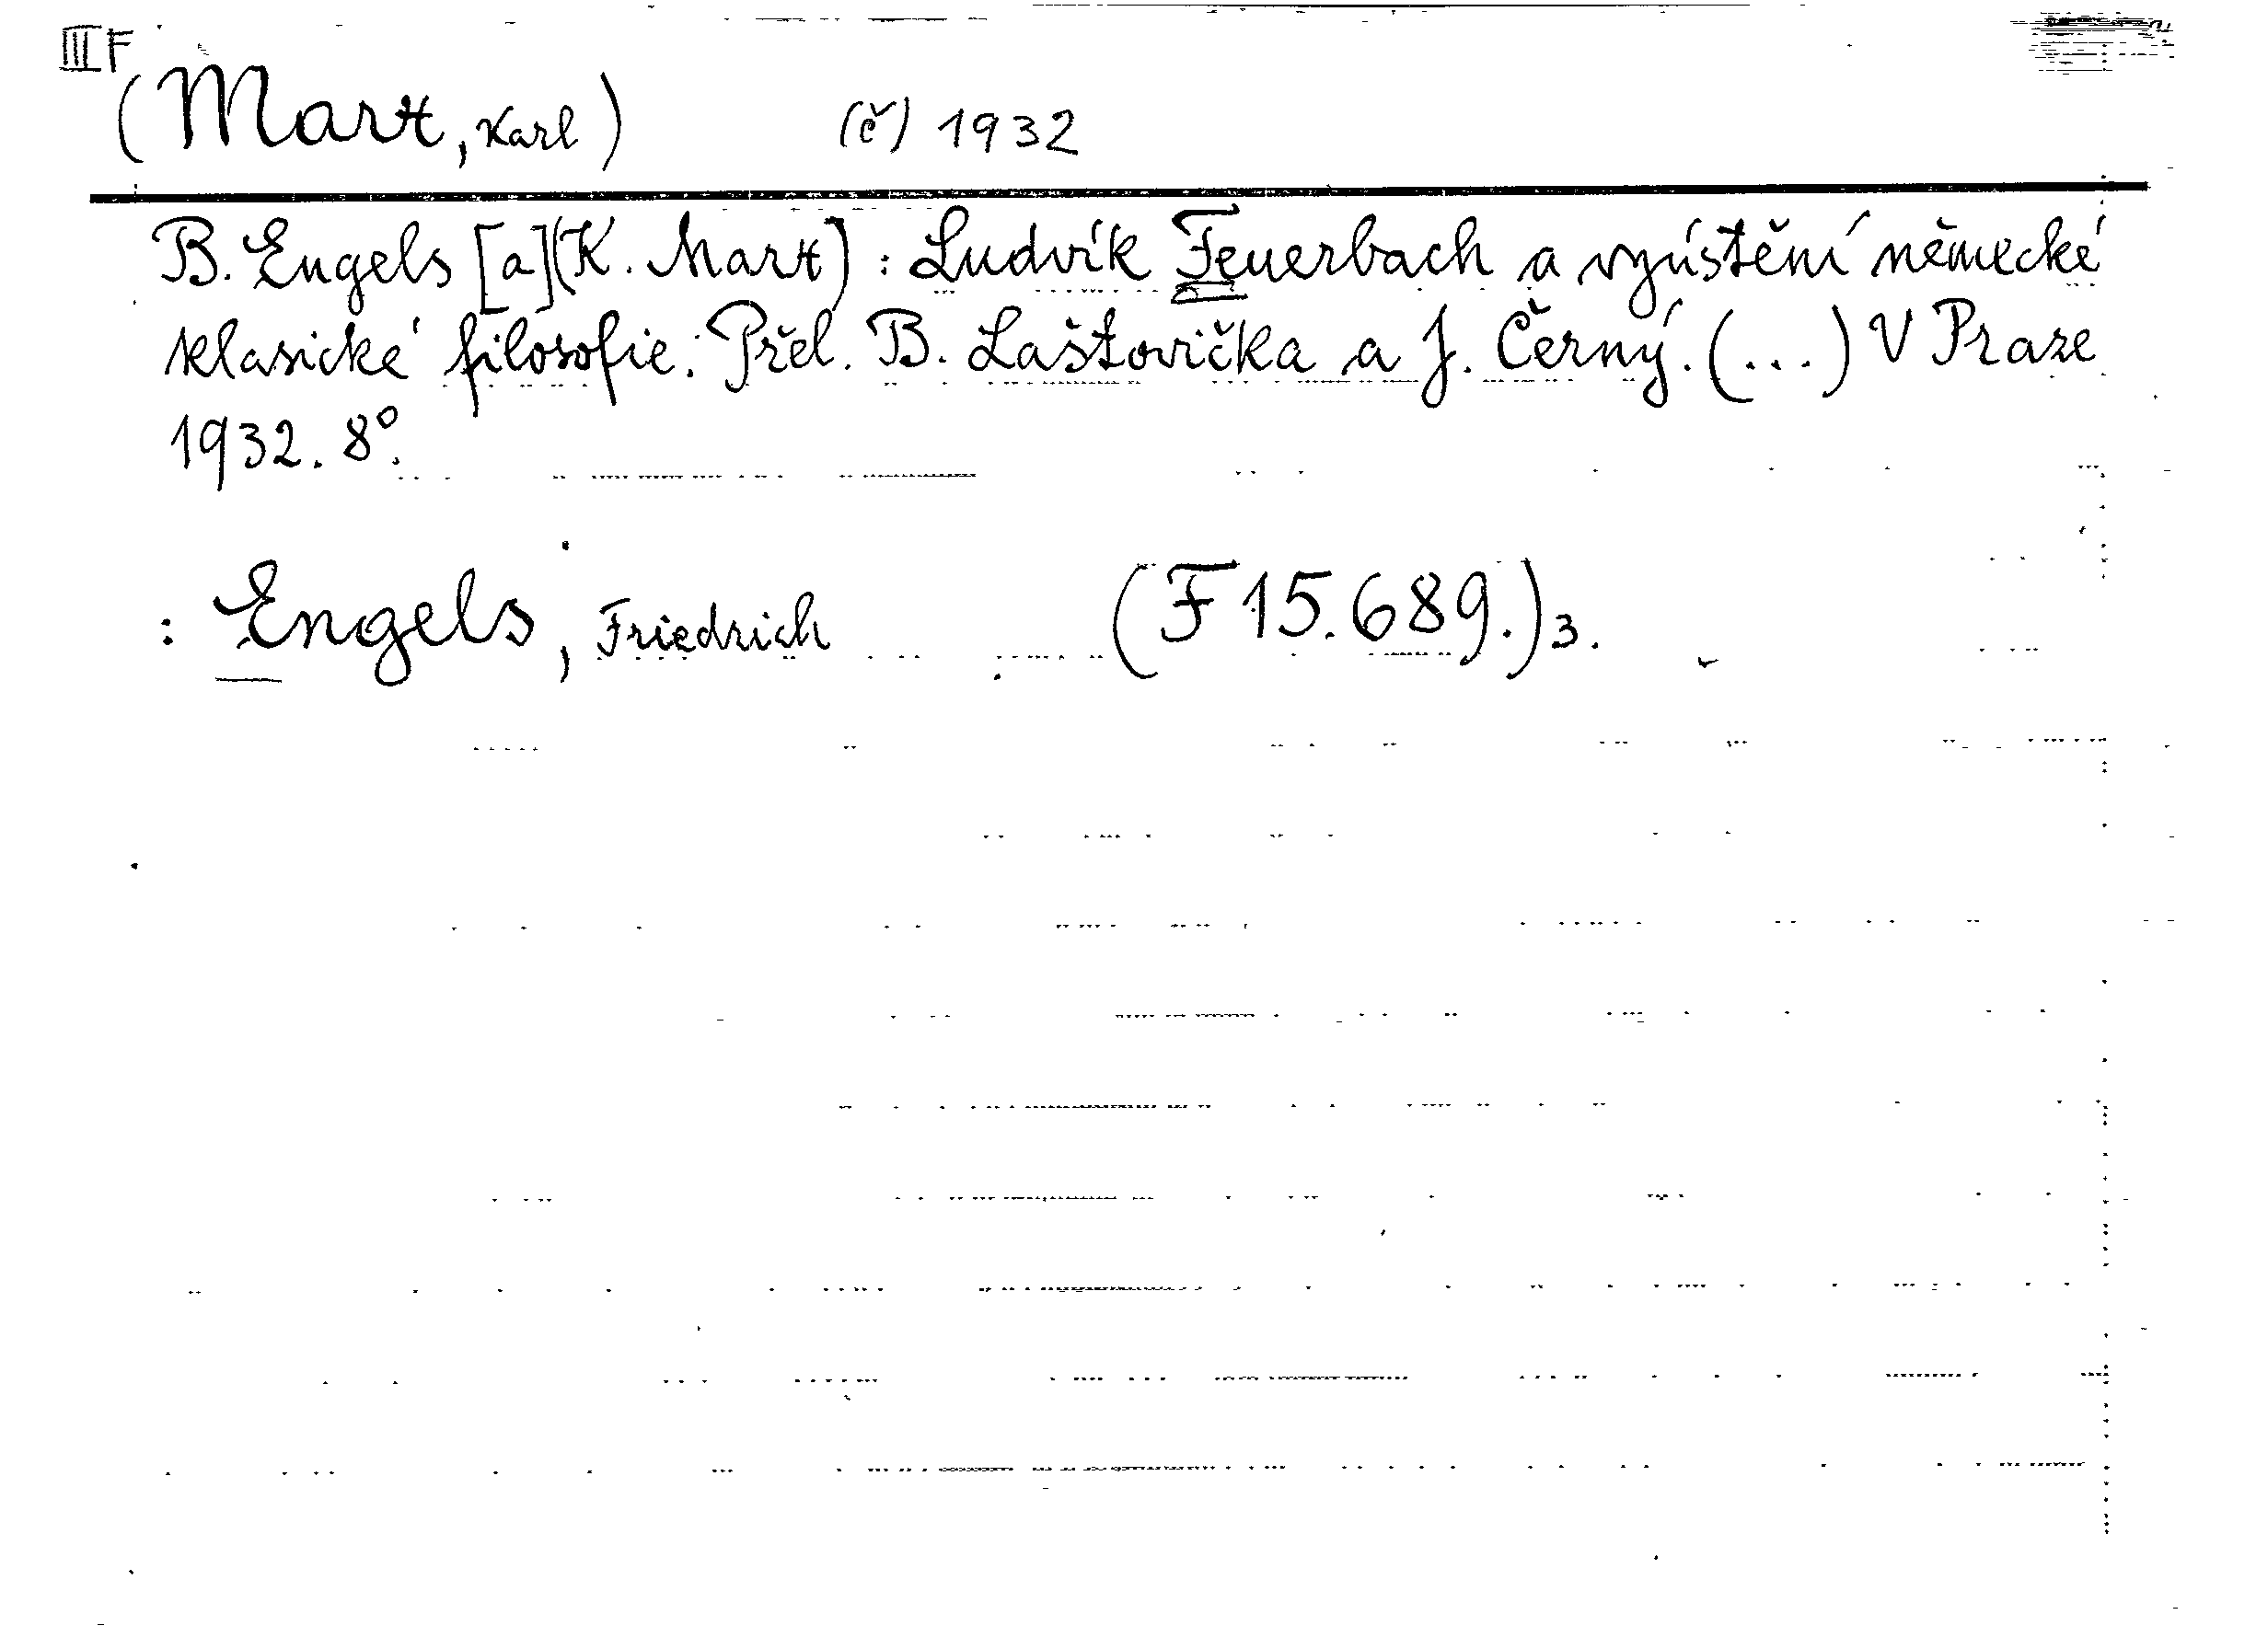 III F
(Marx, Karl) (č) 1932
B. Engels [a] (K. Marx) : Ludvík Feuerbach a vyústění německé
klasické filosofie. Přel. B. Laštovička a J. Černý. (...) V Praze
1932. 8°.
: Engels, Friedrich (F 15.689.) 3.